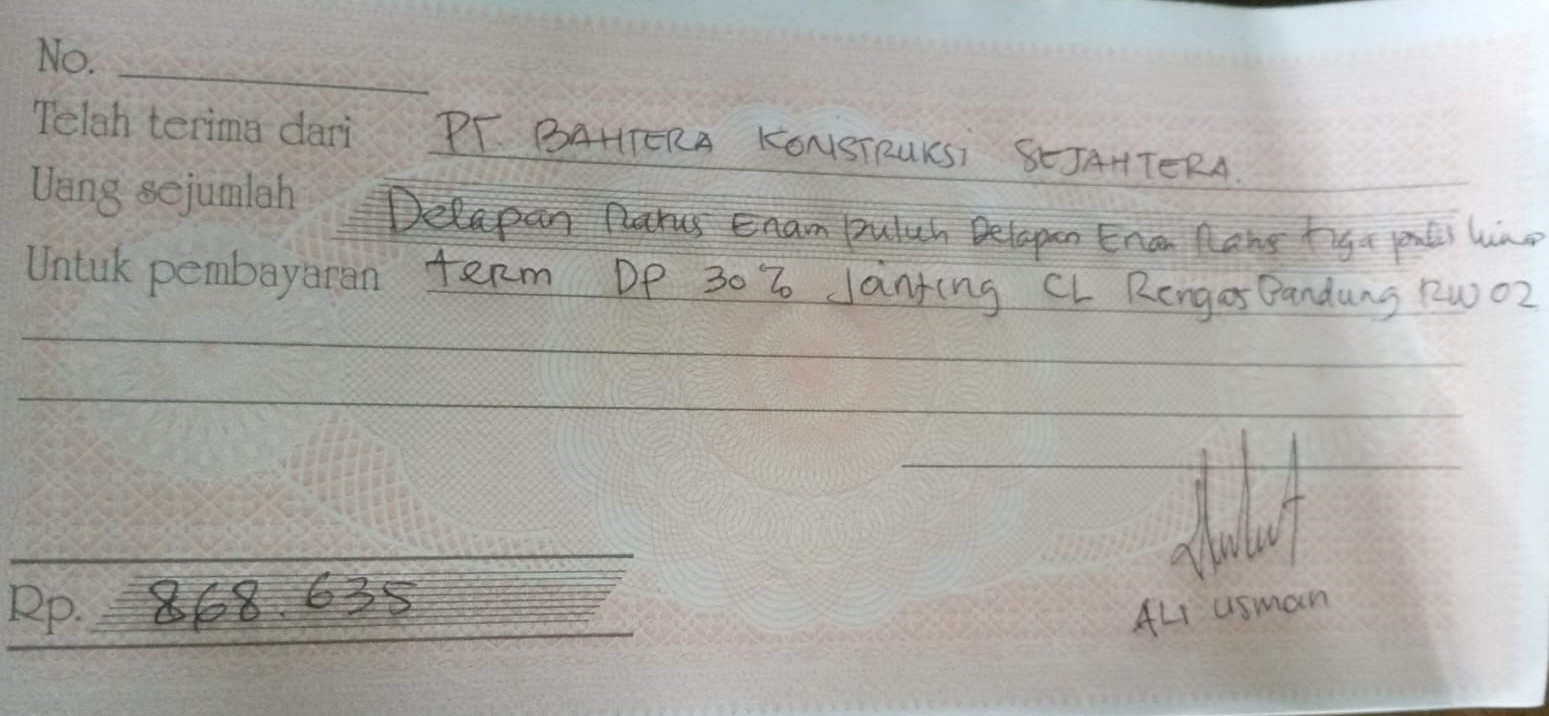 No.
Telah terima dari PT. BAHTERA KONSTRUKSI SEJAHTERA.
Uang sejumlah Delapan Ratus Enam puluh Delapan Enam Ratus tiga puluh lima
Untuk pembayaran term DP 30% Janting CL Rengas Bandung RW 02
Rp. 868.635
ALI USMAN